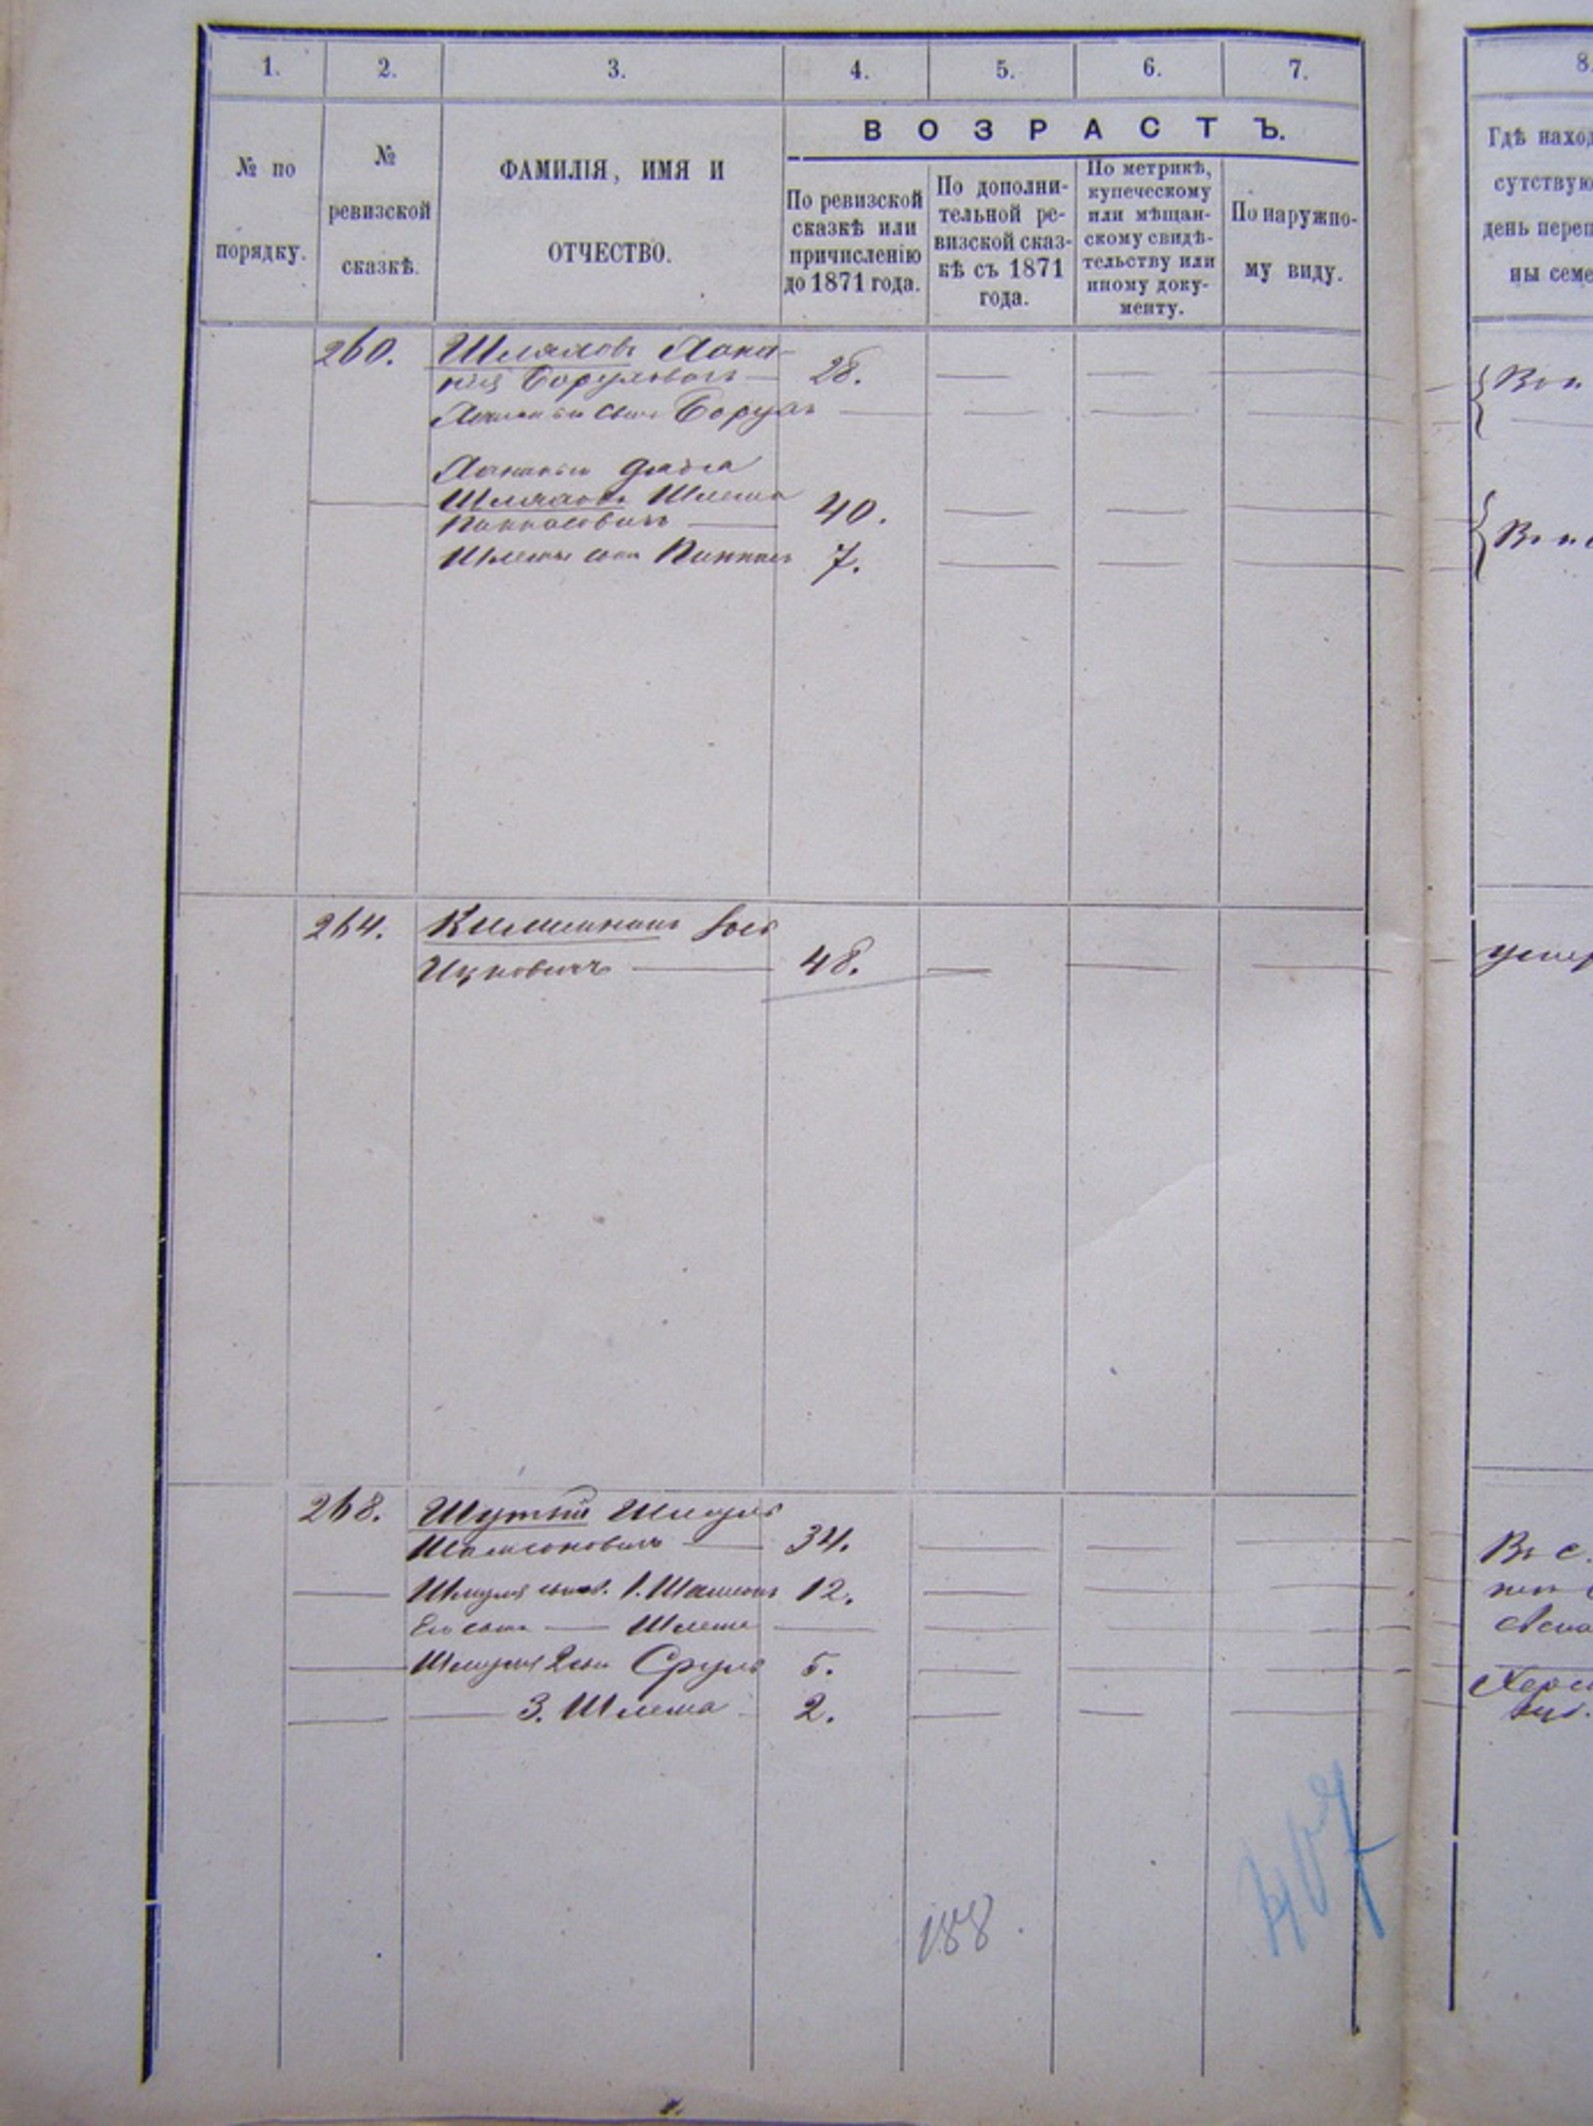 1. 2. 3. 4. 5. 6. 7. 8.
№ по порядку.
№ ревизской сказкѣ.
ФАМИЛІЯ, ИМЯ И
ОТЧЕСТВО.
ВОЗРАСТЪ.
По ревизской
сказкѣ или
причисленію
до 1871 года.
По дополни-
тельной ре-
визской сказ-
кѣ съ 1871
года.
По метрикѣ,
купеческому
или мѣщан-
скому свидѣ-
тельству или
иному доку-
менту.
По наружно-
му виду.
Гдѣ наход
сутствую
день переп
ны семе
260. Шляховъ
Боруховичъ — 28.
сынъ Борухъ
дядя
Шляховъ Шлема
Пинкасовичъ — 40.
Шлемы сынъ Пинкасъ 7.
264.
Ицковичъ — 48.
умер
268. Шутый Шмуль
Шамсоновичъ — 34.
Шмуля сынов. 1. Шамсонъ 12.
Его сынъ — Шлема
Шмуля 2 сын Сруль 5.
3. Шлема 2.
Херс
губ.
188
407